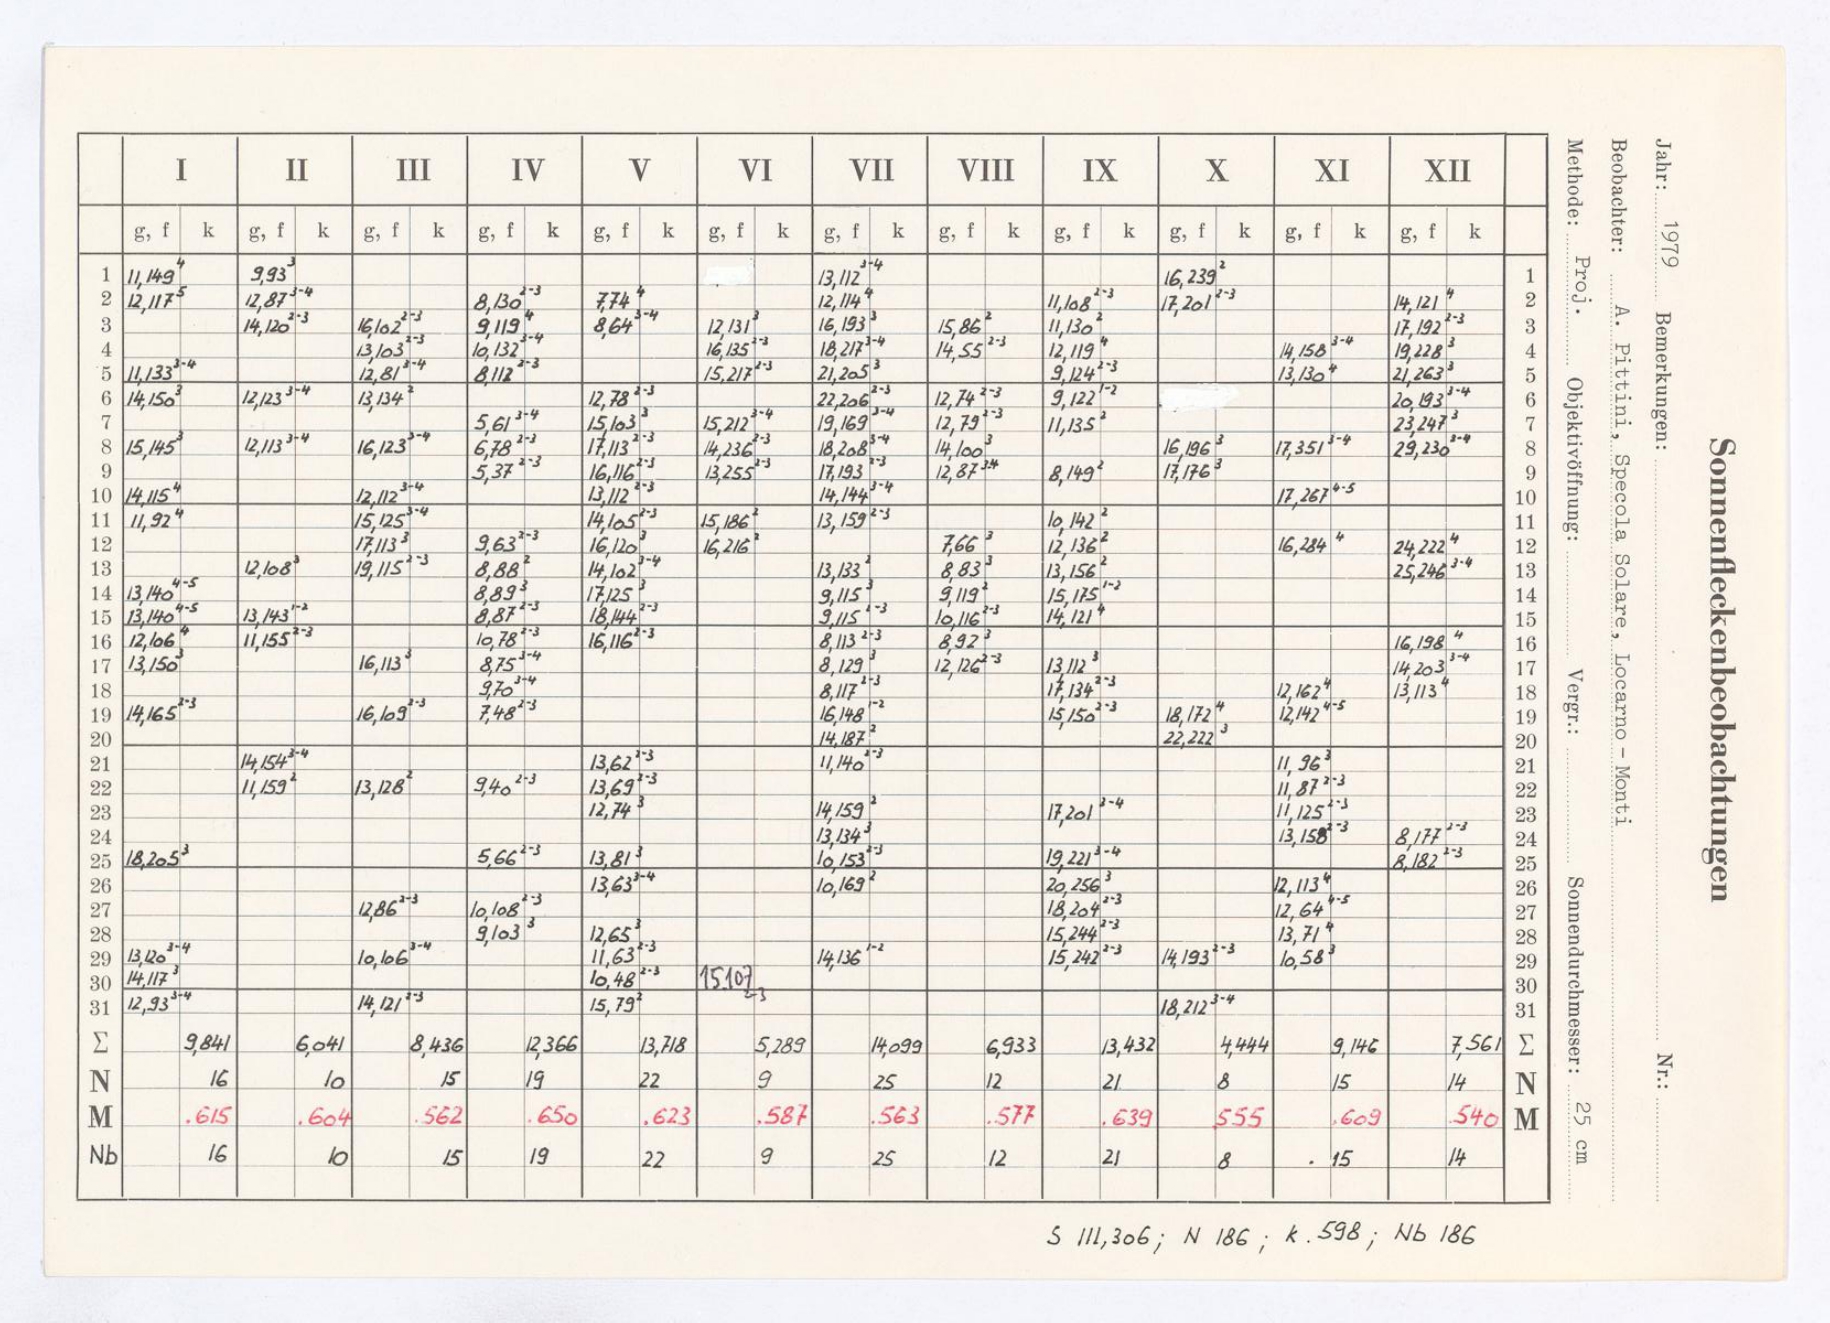 I II III IV V VI VII VIII IX X XI XII
g, f k g, f k g, f k g, f k g, f k g, f k g, f k g, f k g, f k g, f k g, f k g, f k
1 11,149 4 9,93 3 13,112 3-4 16,239 2 1
2 12,117 5 12,87 3-4 8,130 2-3 7,74 4 12,114 4 11,108 2-3 17,201 2-3 14,121 4 2
3 14,120 2-3 16,102 2-3 9,119 4 8,64 3-4 12,131 3 16,193 3 15,86 2 11,130 2 17,192 2-3 3
4 13,103 2-3 10,132 3-4 16,135 2-3 18,217 3-4 14,55 2-3 12,119 4 14,158 3-4 19,228 3 4
5 11,133 3-4 12,81 3-4 8,112 2-3 15,217 2-3 21,205 3 9,124 2-3 13,130 4 21,263 3 5
6 14,150 3 12,123 3-4 13,134 2 12,78 2-3 22,206 2-3 12,74 2-3 9,122 1-2 20,193 3-4 6
7 5,61 3-4 15,103 3 15,212 3-4 19,169 3-4 12,79 2-3 11,135 2 23,247 3 7
8 15,145 3 12,113 3-4 16,123 3-4 6,78 2-3 17,113 2-3 14,236 2-3 18,208 3-4 14,100 3 16,196 3 17,351 3-4 29,230 3-4 8
9 5,37 2-3 16,116 2-3 13,255 2-3 17,193 2-3 12,87 3-4 8,149 2 17,176 3 9
10 14,115 4 12,112 3-4 13,112 2-3 14,144 3-4 17,267 4-5 10
11 11,92 4 15,125 3-4 14,105 2-3 15,186 2 13,159 2-3 10,142 2 11
12 17,113 3 9,63 2-3 16,120 3 16,216 2 7,66 3 12,136 2 16,284 4 24,222 4 12
13 12,108 3 19,115 2-3 8,88 2 14,102 3-4 13,133 2 8,83 3 13,156 2 25,246 3-4 13
14 13,140 4-5 8,89 3 17,125 3 9,115 3 9,119 2 15,175 1-2 14
15 13,140 4-5 13,143 1-2 8,87 2-3 18,144 2-3 9,115 2-3 10,116 2-3 14,121 4 15
16 12,106 4 11,155 2-3 10,78 2-3 16,116 2-3 8,113 2-3 8,92 3 16,198 4 16
17 13,150 3 16,113 3 8,75 3-4 8,129 3 12,126 2-3 13,112 3 14,203 3-4 17
18 9,70 3-4 8,117 2-3 17,134 2-3 12,162 4 13,113 4 18
19 14,165 2-3 16,109 2-3 7,48 2-3 16,148 1-2 15,150 2-3 18,172 4 12,142 4-5 19
20 14,187 2 22,222 3 20
21 14,154 3-4 13,62 2-3 11,140 2-3 11,96 3 21
22 11,159 2 13,128 2 9,40 2-3 13,69 2-3 11,87 2-3 22
23 12,74 3 14,159 2 17,201 3-4 11,125 2-3 23
24 13,134 3 13,158 2-3 8,177 2-3 24
25 18,205 3 5,66 2-3 13,81 3 10,153 2-3 19,221 3-4 8,182 2-3 25
26 13,63 3-4 10,169 2 20,256 3 12,113 4 26
27 12,86 2-3 10,108 2-3 18,204 2-3 12,64 4-5 27
28 9,103 3 12,65 3 15,244 2-3 13,71 4 28
29 13,120 3-4 10,106 3-4 11,63 2-3 14,136 1-2 15,242 2-3 14,193 2-3 10,58 3 29
30 14,117 3 10,48 2-3 15.107 2-3 30
31 12,93 3-4 14,121 2-3 15,79 2 18,212 3-4 31
Σ 9,841 6,041 8,436 12,366 13,718 5,289 14,099 6,933 13,432 4,444 9,146 7,561 Σ
N 16 10 15 19 22 9 25 12 21 8 15 14 N
M .615 .604 .562 .650 .623 .587 .563 .577 .639 .555 .609 .540 M
Nb 16 10 15 19 22 9 25 12 21 8 15 14
S 111,306; N 186; k .598; Nb 186
Sonnenfleckenbeobachtungen
Jahr: 1979 Bemerkungen: Nr.:
Beobachter: A. Pittini, Specola Solare, Locarno - Monti
Methode: Proj. Objektivöffnung: Vergr.: Sonnendurchmesser: 25 cm